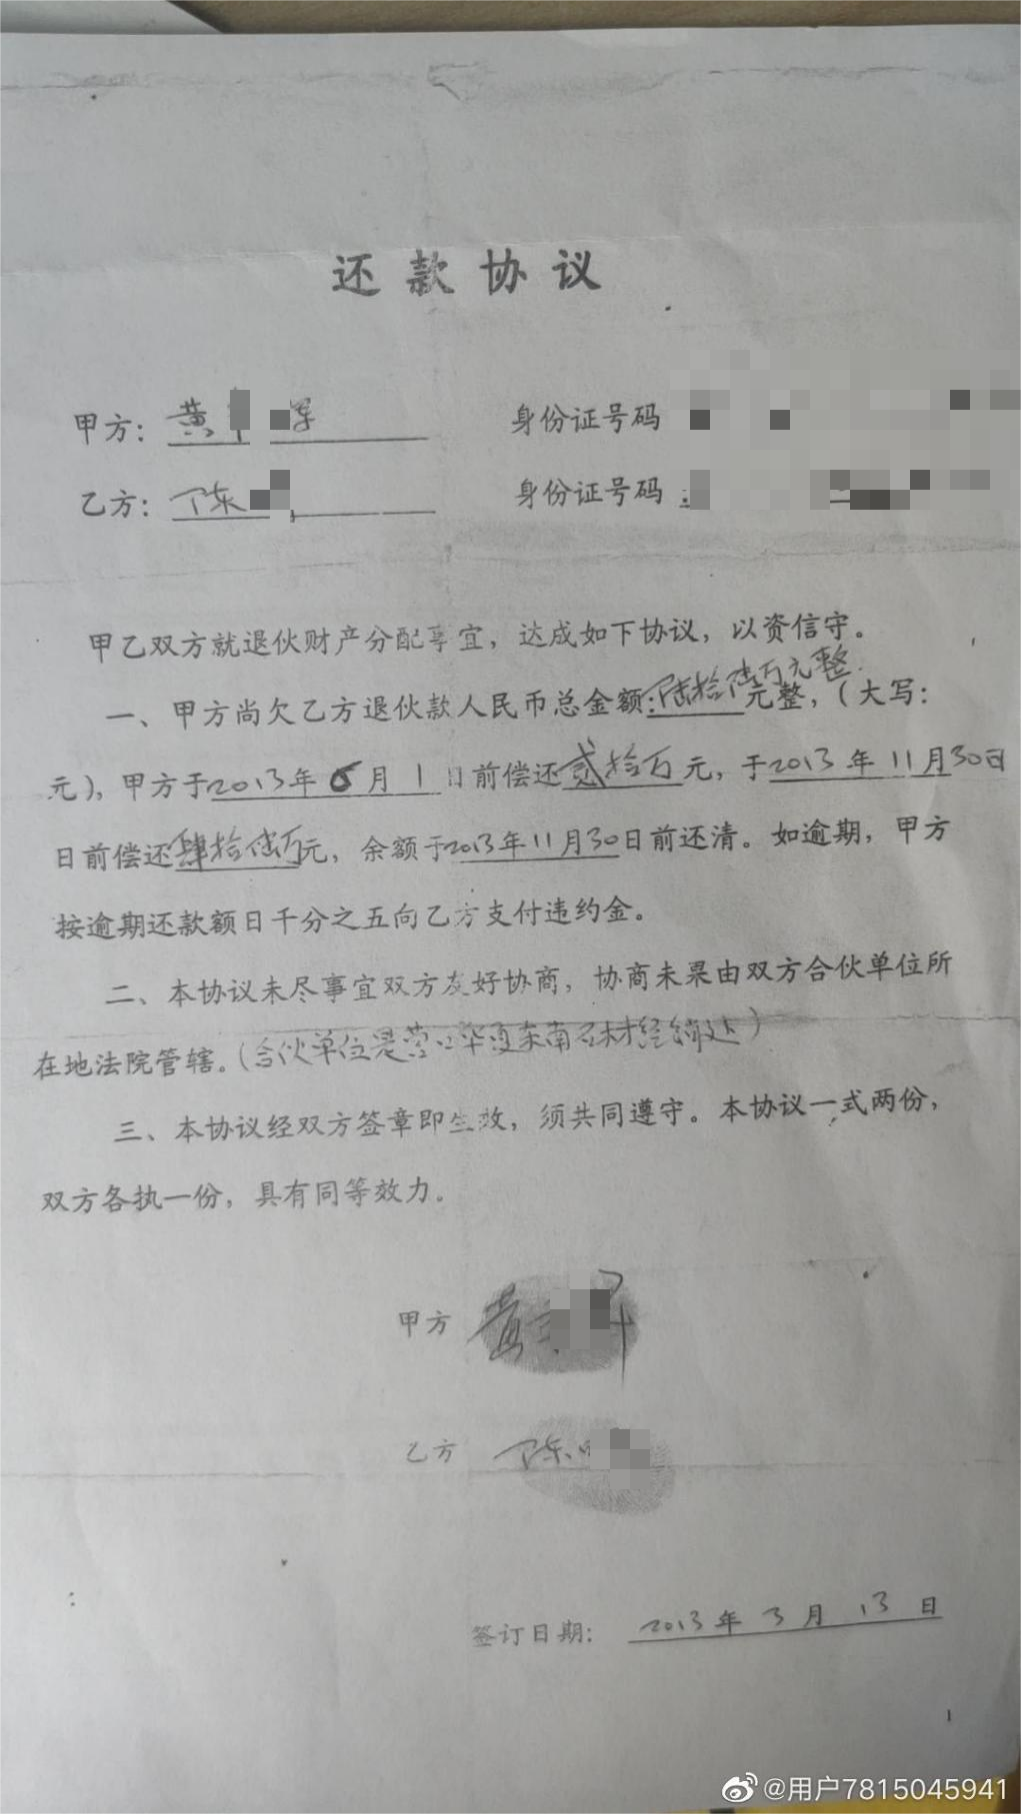 还款协议
甲方：黄
身份证号码
乙方：陈
身份证号码：
甲乙双方就退伙财产分配事宜，达成如下协议，以资信守。
一、甲方尚欠乙方退伙款人民币总金额：陆拾伍万元整.元整，（大写：
元），甲方于2013年6月1日前偿还贰拾万元，于2013年11月30日
日前偿还肆拾伍万元，余额于2013年11月30日前还清。如逾期，甲方
按逾期还款额日千分之五向乙方支付违约金。
二、本协议未尽事宜双方友好协商，协商未果由双方合伙单位所
在地法院管辖。（合伙单位是营口华东南石材经销处）
三、本协议经双方签章即生效，须共同遵守。本协议一式两份，
双方各执一份，具有同等效力。
甲方 黄
乙方 陈
签订日期：2013年3月13日
1
@用户7815045941